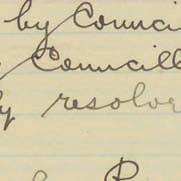 by Counci
Councill
resolv